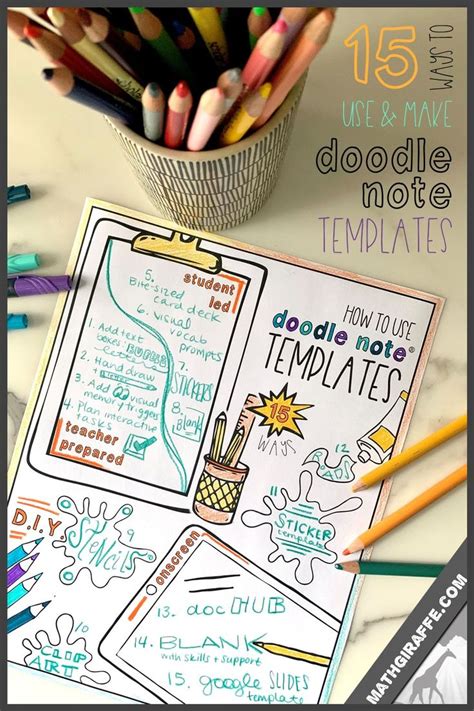 15 WAYS TO
USE & MAKE
doodle
note
TEMPLATES
HOW TO USE
doodle note®
TEMPLATES
15
WAYS
student
led
5. Bite-sized
card deck
6. visual
vocab
prompts
7. STICKERS
8. Blank
1. Add text
boxes:
2. Hand draw
+
3. Add visual
memory triggers
4. Plan interactive
tasks
teacher
prepared
D.I.Y.
9
STENCILS
10
CLIP
ART
11
STICKER
template
12
onscreen
13. doc HUB
14. BLANK
with skills + support
15. google SLIDES
template
MATHGIRAFFE.COM